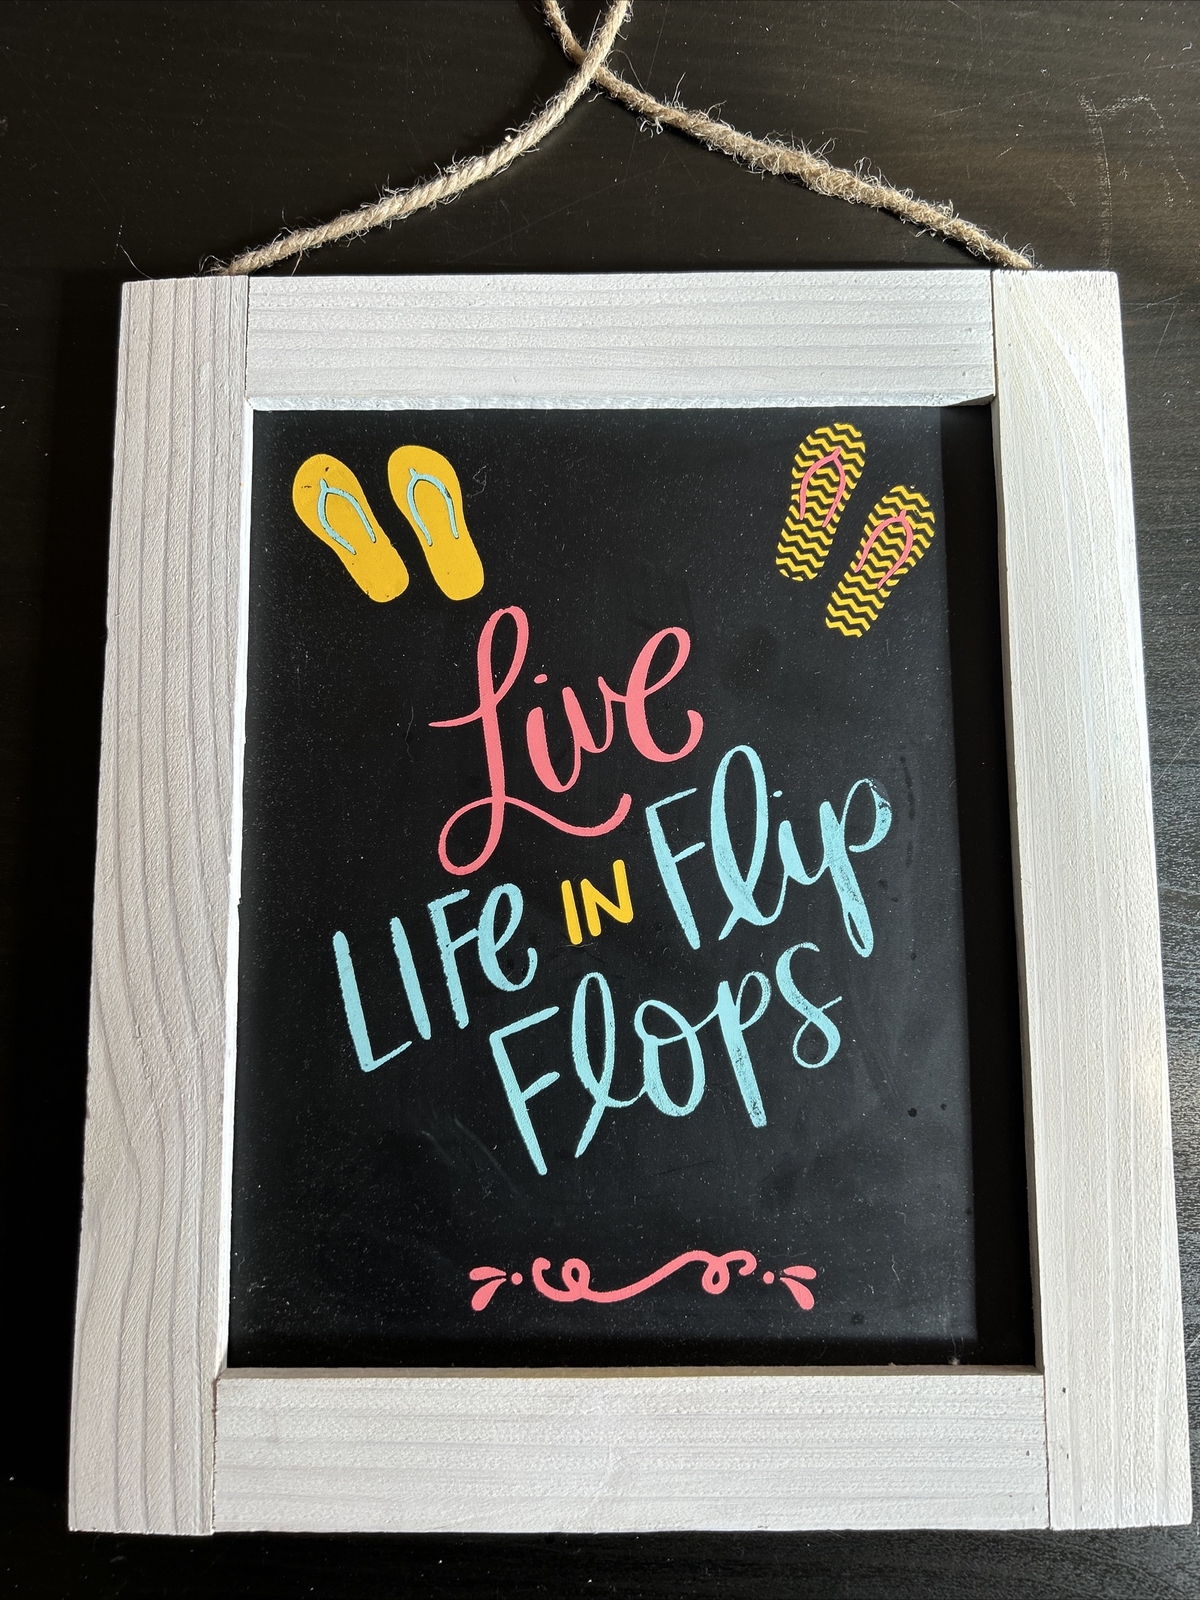 Live
LIFe IN Flip
Flops